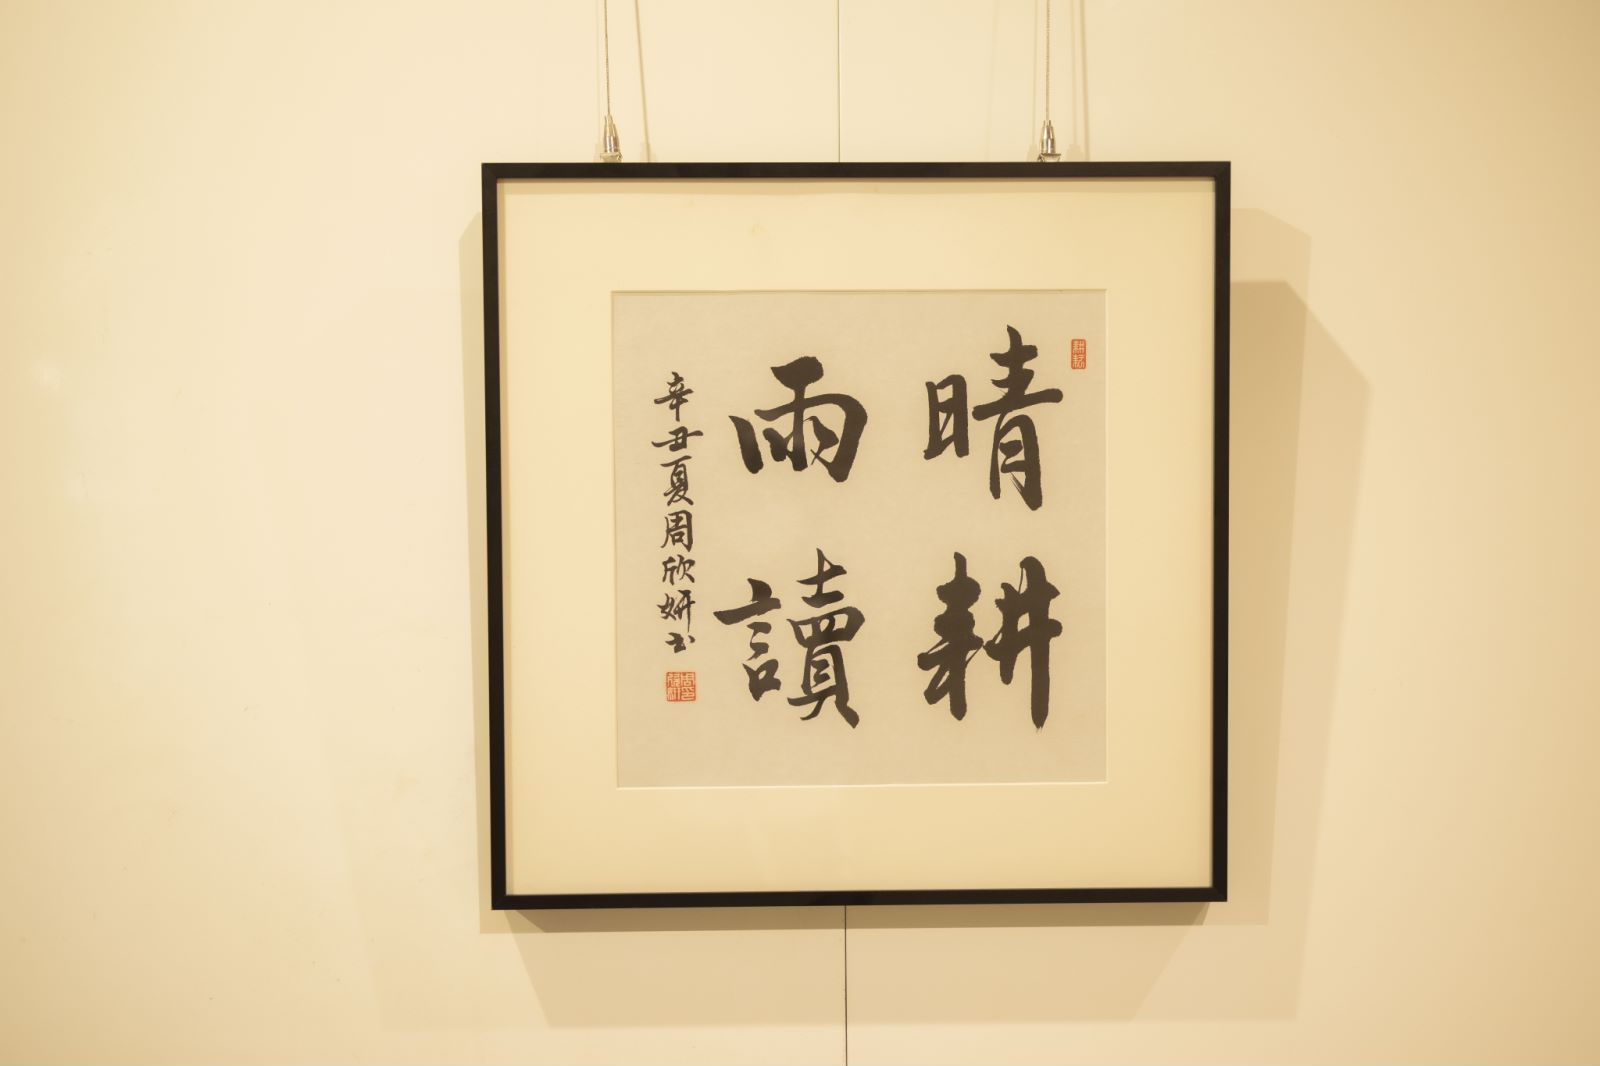 晴耕
雨讀
辛丑夏周欣妍书